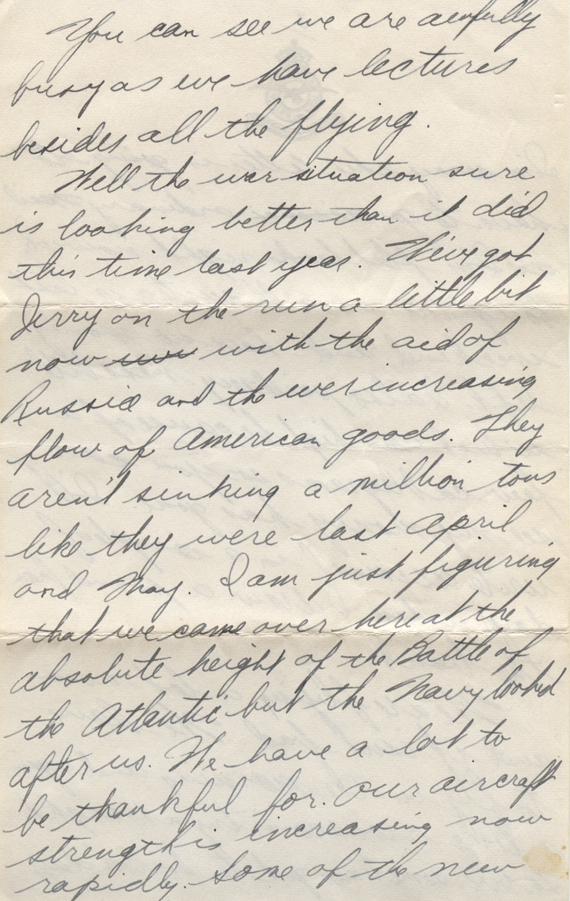 You can see we are awfully
busy as we have lectures
besides all the flying.
Well the war situation sure
is looking better than it did
this time last year. We've got
Jerry on the run a little bit
now with the aid of
Russia and the ever increasing
flow of American goods. They
aren't sinking a million tons
like they were last April
and May. I am just figuring
that we came over here at the
absolute height of the Battle of
the Atlantic but the Navy looked
after us. We have a lot to
be thankful for. Our aircraft
strength is increasing now
rapidly. Some of the new